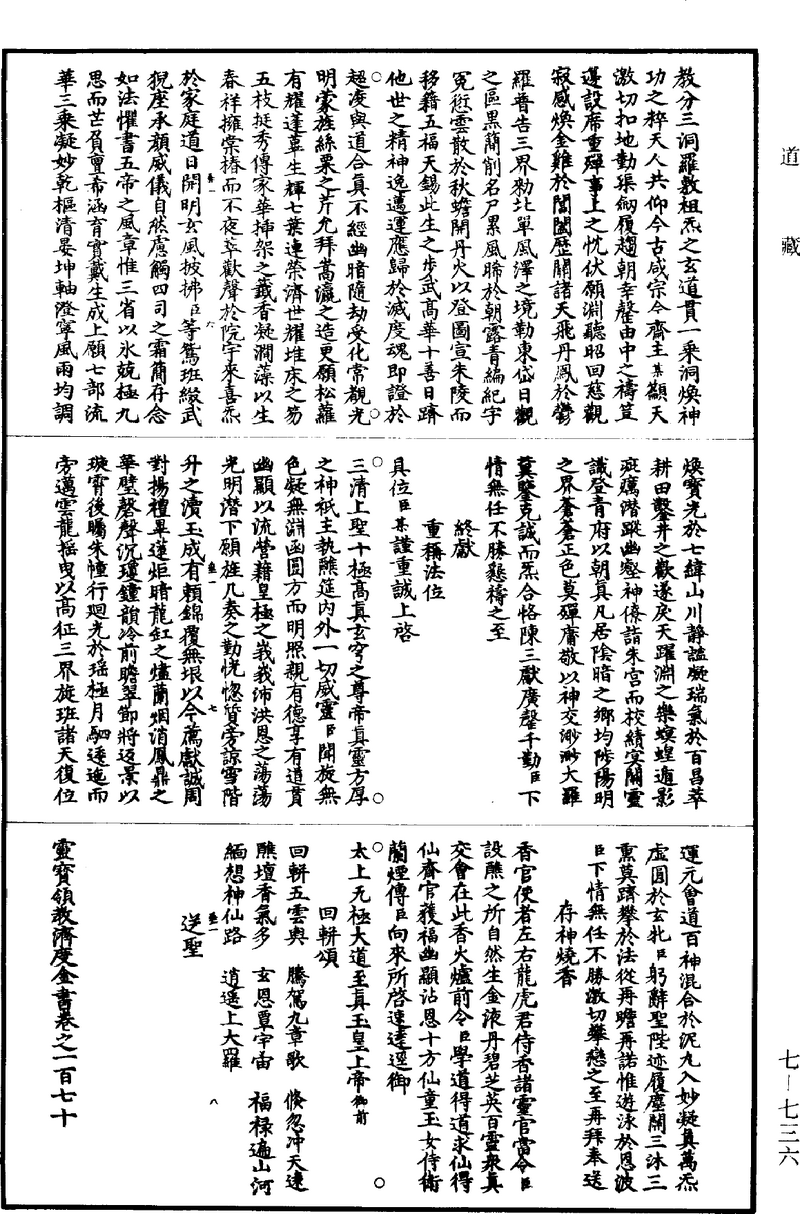 道藏
七—七三六
教分三洞羅數祖炁之玄道貫一乘洞煥神
功之粹天人共仰今古咸宗今齋主某顒天
激切扣地勤渠剏履趨朝幸罄由中之禱豈
邊設席重殫事上之忱伏願淵聽昭回慈觀
寂感煥金雞於閶闔歷關諸天飛丹鳳於鬱
羅普告三界勑北單風澤之境勒東岱日觀
之區黑簡削名尸累風晞於朝露青編紀字
冤愆雲散於秋蟾開丹火以登圖宣朱陵而
移籍五福天錫此生之步武高華十善日躋
他世之精神逸邁運應歸於滅度魂即證於
超凌與道合真不經幽暗隨劫受化常觀光
明蒙旌絲粟之芹允拜嵩瀛之造更願松蘿
有耀蓬蓽生輝七葉連榮濟世耀堆床之笏
五枝挺秀傳家華插架之籤香凝澗藻以生
春祥擁棠椿而不夜萃歡聲於院宇來喜炁
於家庭道日開明玄風披拂臣等駑班綴武
猊座承顏威儀自然慮觸四司之霜簡存念
如法懼書五帝之風章惟三省以氷兢極九
思而芒負亶希涵育實戴生成上願七部流
華三乘凝妙乾樞清晏坤軸澄寧風雨均調
煥寶光於七緯山川靜謐凝瑞氣於百昌萃
耕田鑿井之歡遂戾天躍淵之樂螟蝗遁影
疵癘潛蹤幽壑神僚詣朱宮而校績冥關靈
識登青府以朝真凡居陰暗之鄉均陟陽明
之界蒼蒼正色莫殫膚敬以神交渺渺大羅
冀鑒克誠而炁合恪陳三獻廣罄千勤臣下
情無任不勝懇禱之至
終獻
重稱法位
具位臣某謹重誠上啓
三清上聖十極高真玄穹之尊帝真靈方厚
之神祇主執醮筵內外一切威靈臣聞旋無
色凝無淵函圓方而明照親有德享有道貫
幽顯以流營藉皇極之峩峩沛洪恩之蕩蕩
光明潛下願旌几奏之勤恍惚質旁諒雪階
升之瀆玉成有賴錦覆無垠以今薦獻誠周
對揚禮畢蓮炬暗龍缸之燼蘭烟消鳳鼎之
華壁磬聲沉瓊鐘韻冷前瞻翠節將返景以
璇霄後矚朱幢行迴光於瑤極月駟逶迤而
旁邁雲龍搖曳以高征三界旋班諸天復位
運元會道百神混合於泥丸入妙凝真萬炁
虛圓於玄牝臣躬辭聖陛迹履塵關三沐三
熏莫躋攀於法從再瞻再諾惟遊泳於恩波
臣下情無任不勝激切攀戀之至再拜奉送
存神燒香
香官使者左右龍虎君侍香諸靈官當令臣
設醮之所自然生金液丹碧芝英百靈衆真
交會在此香火爐前令臣學道得道求仙得
仙齋官獲福幽顯沾恩十方仙童玉女侍衛
蘭煙傳臣向來所啓速達逕御
太上无極大道至真玉皇上帝御前
回軿頌
回軿五雲輿　騰駕九章歌　倏忽冲天遠
醮壇香氣多　玄恩覃宇宙　福祿遍山河
緬想神仙路　逍遙上大羅
送聖
靈寶領教濟度金書卷之一百七十